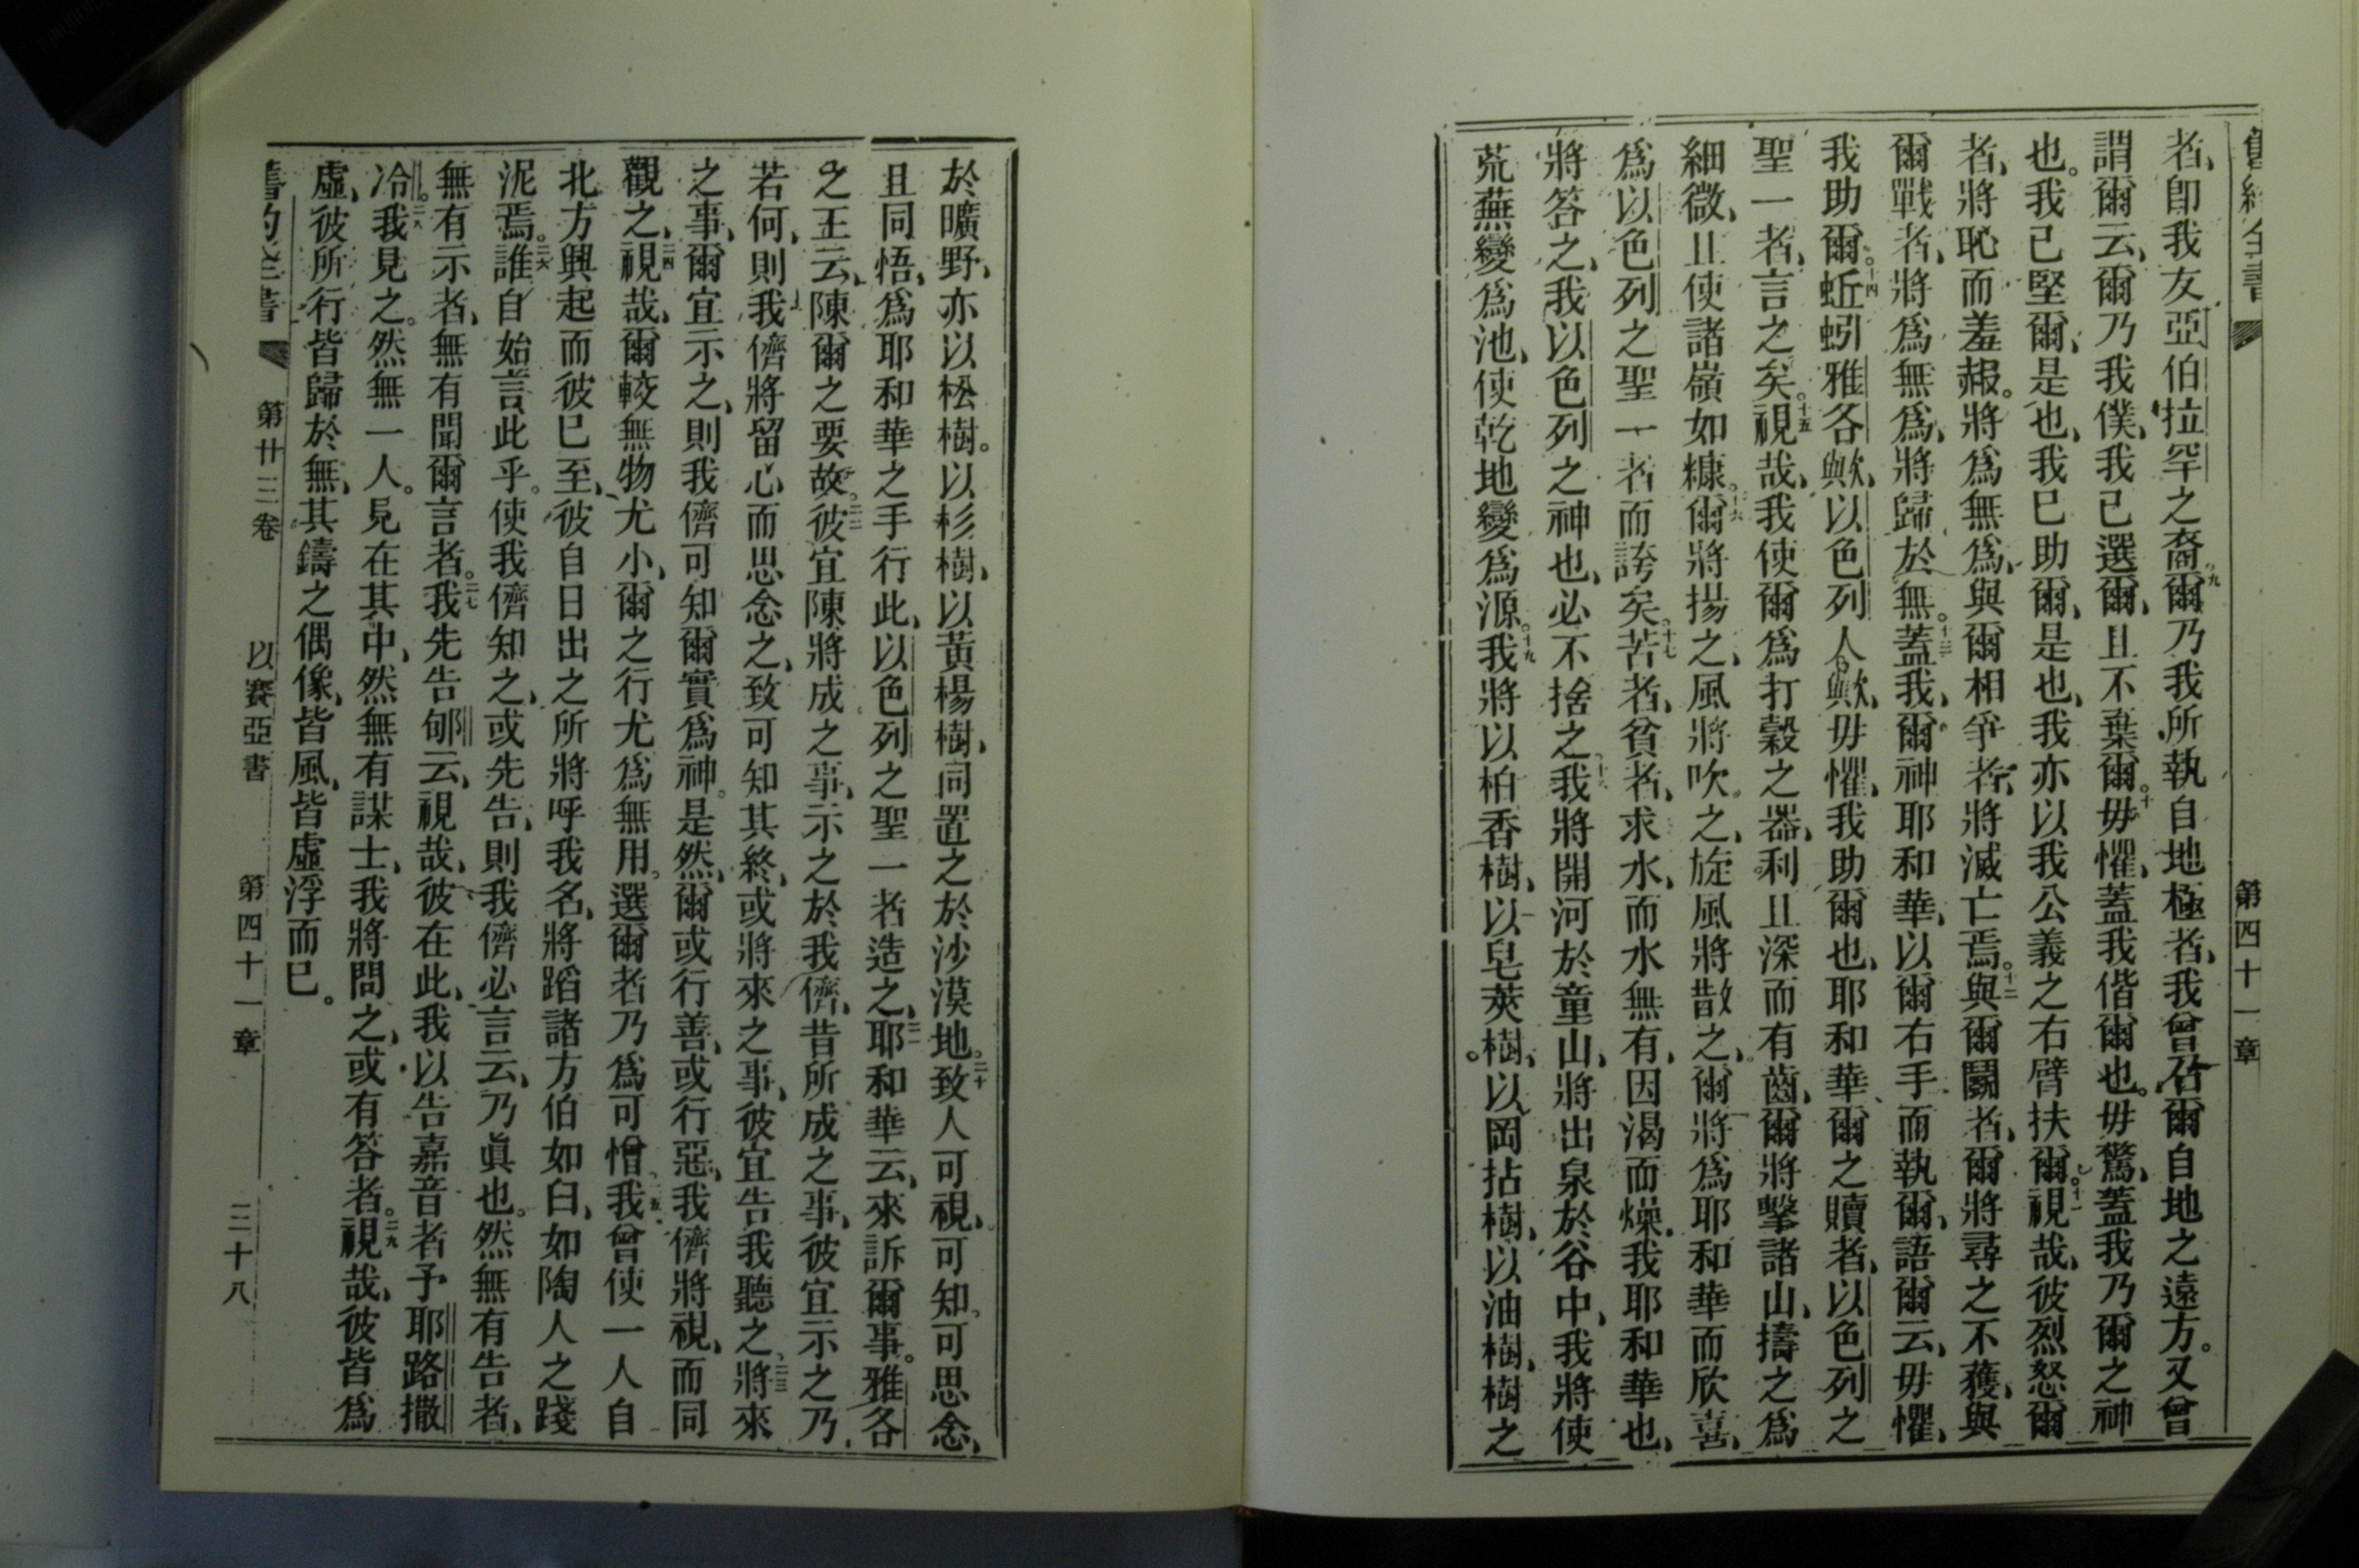 第四十一章
者、卽我友亞伯拉罕之裔。九爾乃我所執自地極者、我曾召爾自地之遠方。又曾
謂爾云、爾乃我僕、我已選爾、且不棄爾。十毋懼、蓋我偕爾也。毋驚、蓋我乃爾之神
也。我已堅爾、是也、我已助爾、是也、我亦以我公義之右臂扶爾。十一視哉、彼烈怒爾
者、將恥而羞赧。將爲無爲、與爾相爭者、將滅亡焉。十二與爾鬬者、爾將尋之不獲、與
爾戰者、將爲無爲、將歸於無。十三蓋我、爾神耶和華、以爾右手而執爾、語爾云、毋懼、
我助爾。十四蚯蚓雅各歟、以色列人歟、毋懼、我助爾也、耶和華爾之贖者、以色列之
聖一者、言之矣。十五視哉、我使爾爲打穀之器、利且深而有齒、爾將擊諸山、擣之爲
細微、且使諸嶺如糠。十六爾將揚之、風將吹之、旋風將散之、爾將爲耶和華而欣喜、
爲以色列之聖一者而誇矣。十七苦者、貧者、求水、而水無有、因渴而燥、我耶和華也、
將答之、我以色列之神也、必不捨之。十八我將開河於童山、將出泉於谷中、我將使
荒蕪變爲池、使乾地變爲源。十九我將以柏香樹、以皂莢樹、以岡拈樹、以油樹、樹之
於曠野、亦以松樹。以杉樹、以黃楊樹、同置之於沙漠地。二十致人可視、可知、可思念、
且同悟、爲耶和華之手行此、以色列之聖一者造之。二一耶和華云、來訴爾事。雅各
之王云、陳爾之要故。二二彼宜陳將成之事、示之於我儕、昔所成之事、彼宜示之乃
若何、則我儕將留心而思念之、致可知其終、或將來之事、彼宜告我聽之。二三將來
之事、爾宜示之、則我儕可知爾實爲神。是然、爾或行善、或行惡、我儕將視、而同
觀之。二四視哉、爾較無物尤小、爾之行尤爲無用。選爾者乃爲可憎。二五我曾使一人自
北方興起而彼已至、彼自日出之所將呼我名、將蹈諸方伯如臼、如陶人之踐
泥焉。二六誰自始言此乎。使我儕知之、或先告、則我儕必言云、乃眞也。然無有告者、
無有示者、無有聞爾言者。二七我先告郇云、視哉、彼在此、我以告嘉音者予耶路撒
冷。二八我見之。然無一人。見在其中、然無有謀士、我將問之、或有答者。二九視哉、彼皆爲
虛、彼所行皆歸於無、其鑄之偶像、皆風、皆虛浮而已。
第廿三卷 以賽亞書 第四十一章 三十八